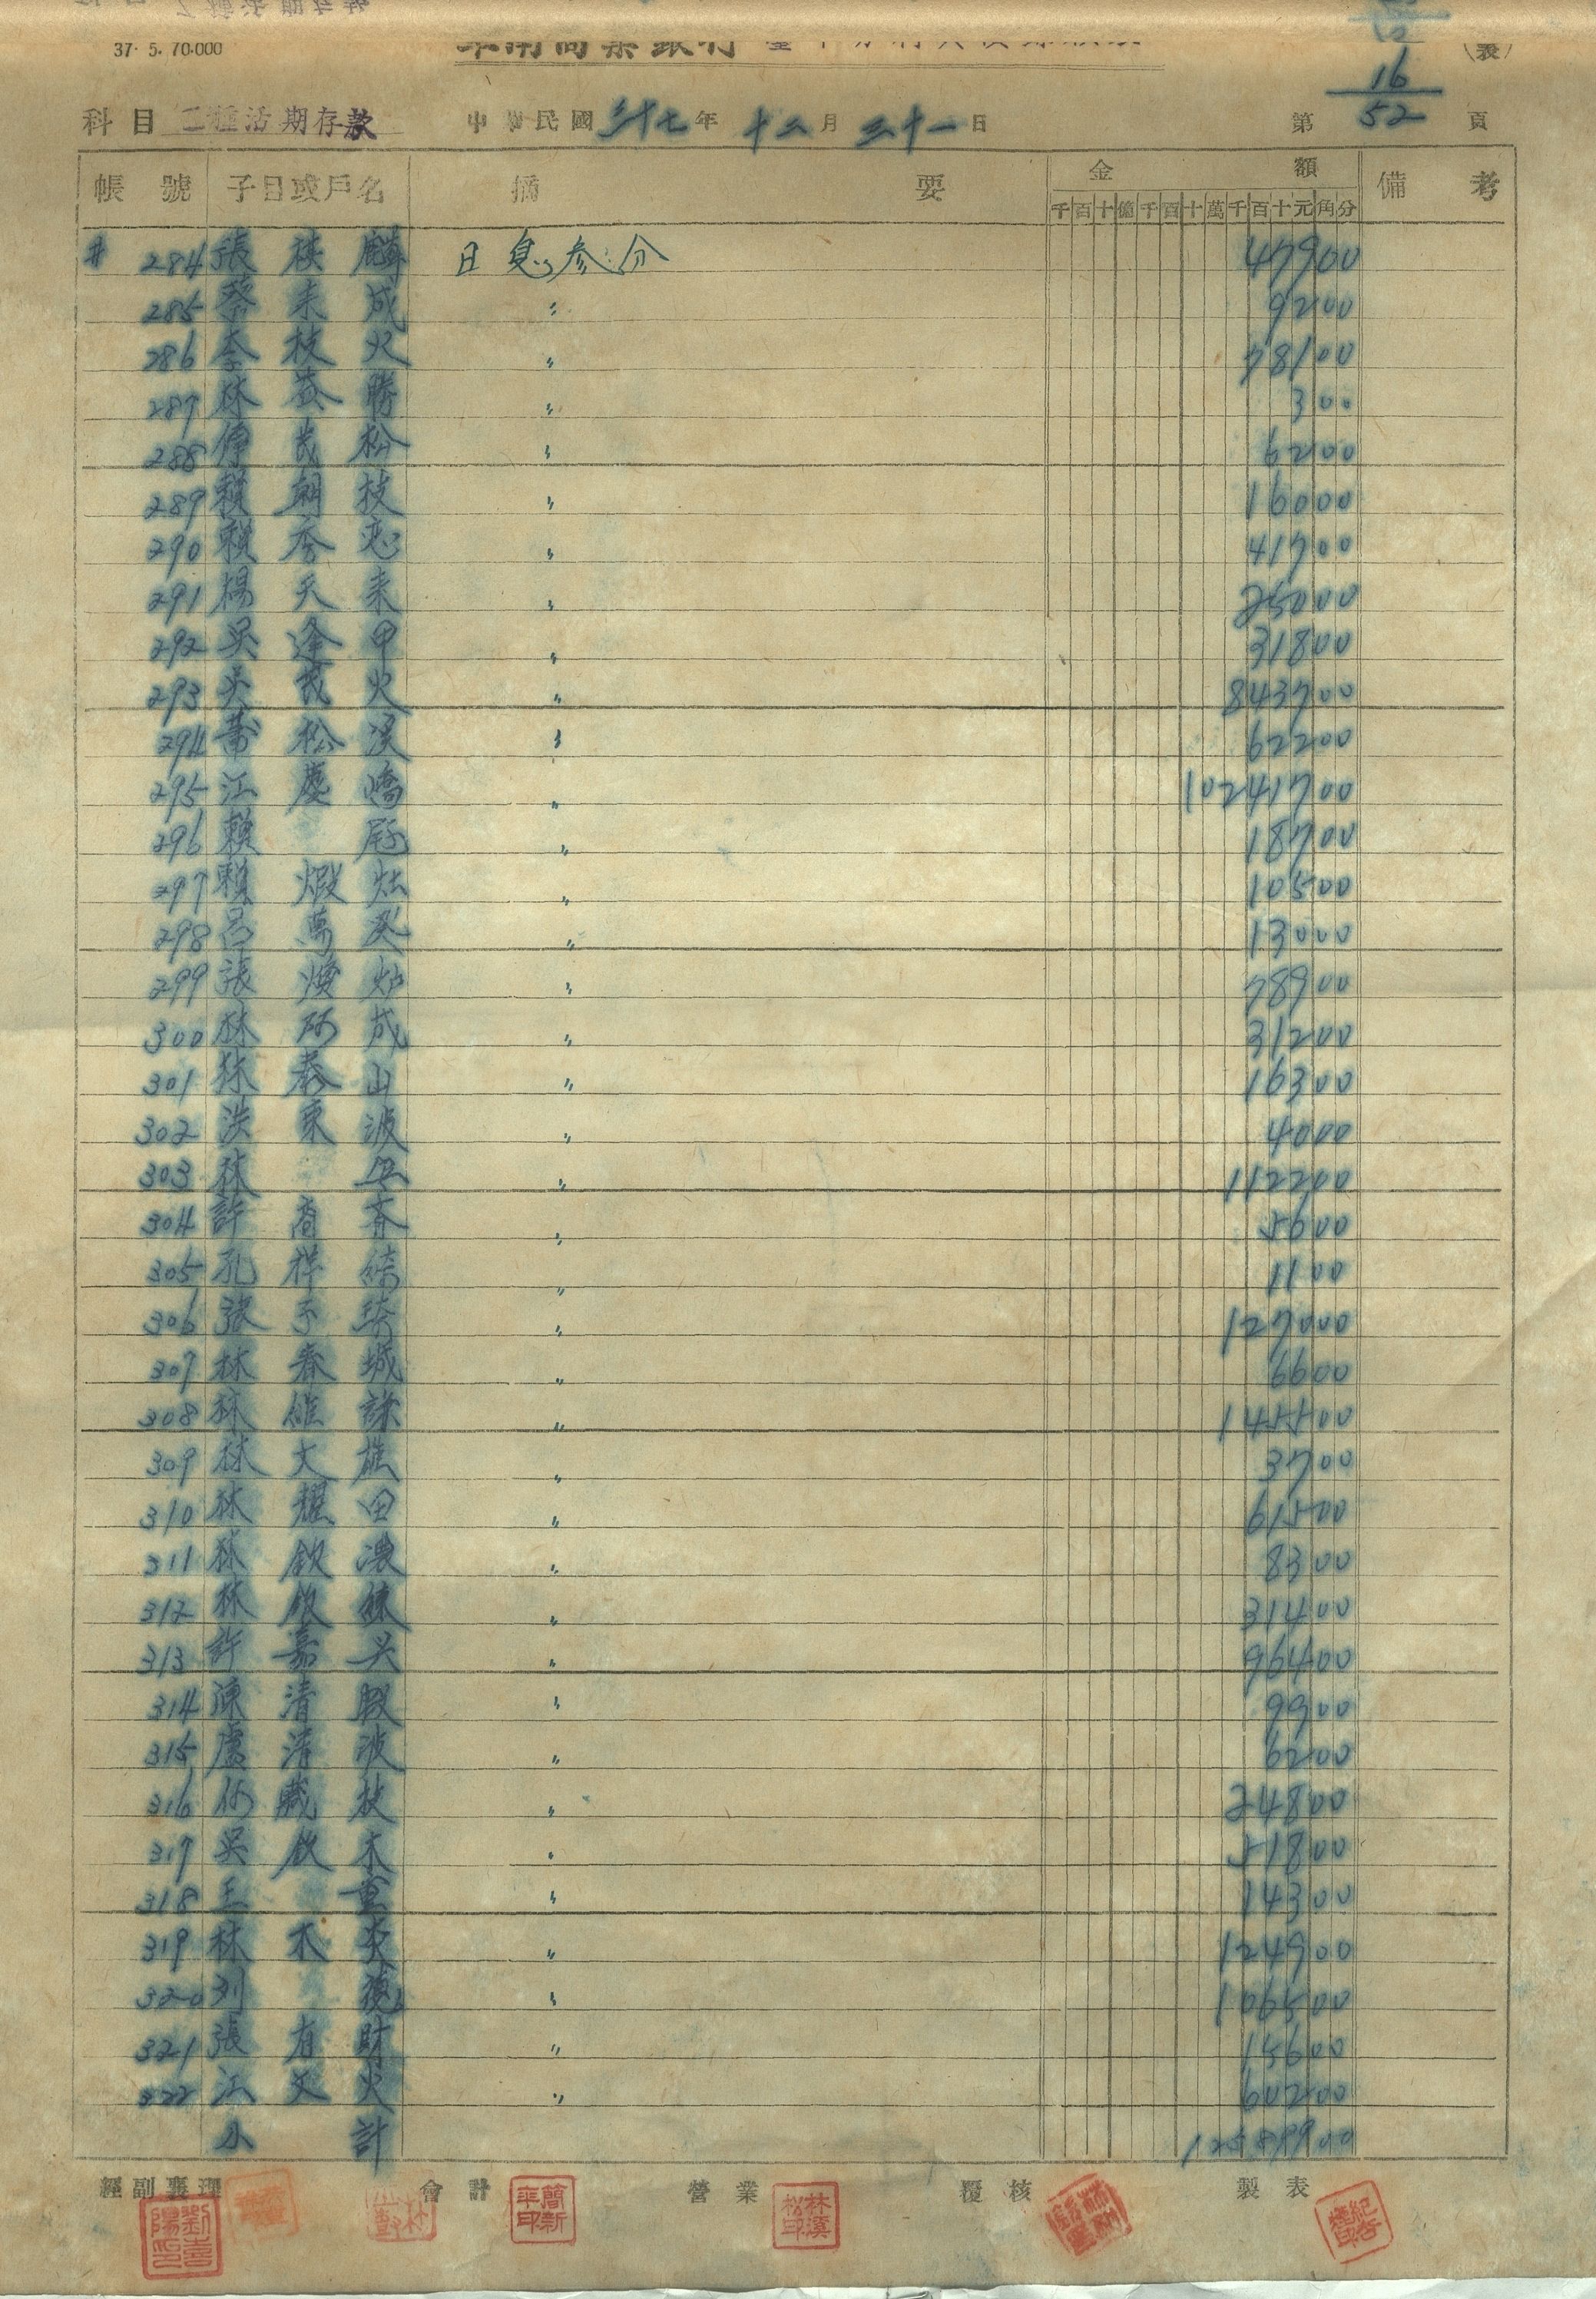 37. 5. 70.000
華南商業銀行
16
52
科目 二種活期存款 中華民國 三十七 年 十二 月 三十一 日 第 頁
帳號 子目或戶名 摘要 金額 備考
千百十億千百十萬千百十元角分
# 284 張 麟 日息參分 47900
285 蔡來成 〃 9200
286 李枝火 〃 78100
287 林益勝 〃 300
288 茂松 〃 6200
289 賴朝枝 〃 16000
290 賴秀 〃 41700
291 楊天來 〃 25000
292 吳逢甲 〃 31800
293 吳茂火 〃 843700
294 松溪 〃 62200
295 江慶 〃 10241700
296 賴 〃 18700
297 賴煅灶 〃 10500
298 呂萬 〃 13000
299 張炉 〃 78900
300 林阿成 〃 31200
301 林泰山 〃 16300
302 洪東波 〃 4000
303 林 〃 112200
304 許 〃 5600
305 孔祥 〃 1100
306 張子琦 〃 127000
307 林春城 〃 6600
308 林維謀 〃 145500
309 林大樵 〃 3700
310 林耀田 〃 61500
311 林欽濃 〃 8300
312 林欽鍊 〃 31400
313 許嘉兴 〃 96400
314 陳清 〃 9900
315 盧清波 〃 6200
316 何藏枝 〃 24800
317 吳欽木 〃 51800
318 王重 〃 14300
319 林木炎 〃 124900
320 刘 〃 106500
321 張有財 〃 15600
322 江文火 〃 60200
小計
經副襄理 會計 營業 覆核 製表